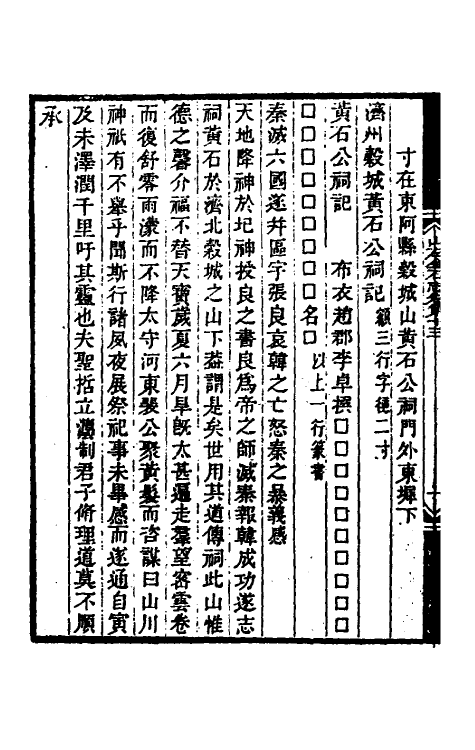 寸在東阿縣穀城山黃石公祠門外東墀下
濟州穀城黃石公祠記額三行字徑二寸
黃石公祠記 布衣趙郡李卓撰□□□□□□□
□□□□□□□□□名□以上一行篆書
秦滅六國遂幷區宇張良哀韓之亡怒秦之暴義感
天地降神於圯神授良之書良爲帝之師滅秦報韓成功遂志
祠黃石於濟北穀城之山下葢謂是矣世用其道傳祠此山惟
德之馨介福不替天寶歲夏六月旱旣太甚遍走羣望密雲卷
而復舒零雨濛而不降太守河東裴公聚黃髮而咨謀曰山川
神祇有不舉乎聞斯行諸夙夜展祭祀事未畢感而遂通自寅
及未澤潤千里吁其靈也夫聖哲立制君子脩理道莫不順
承